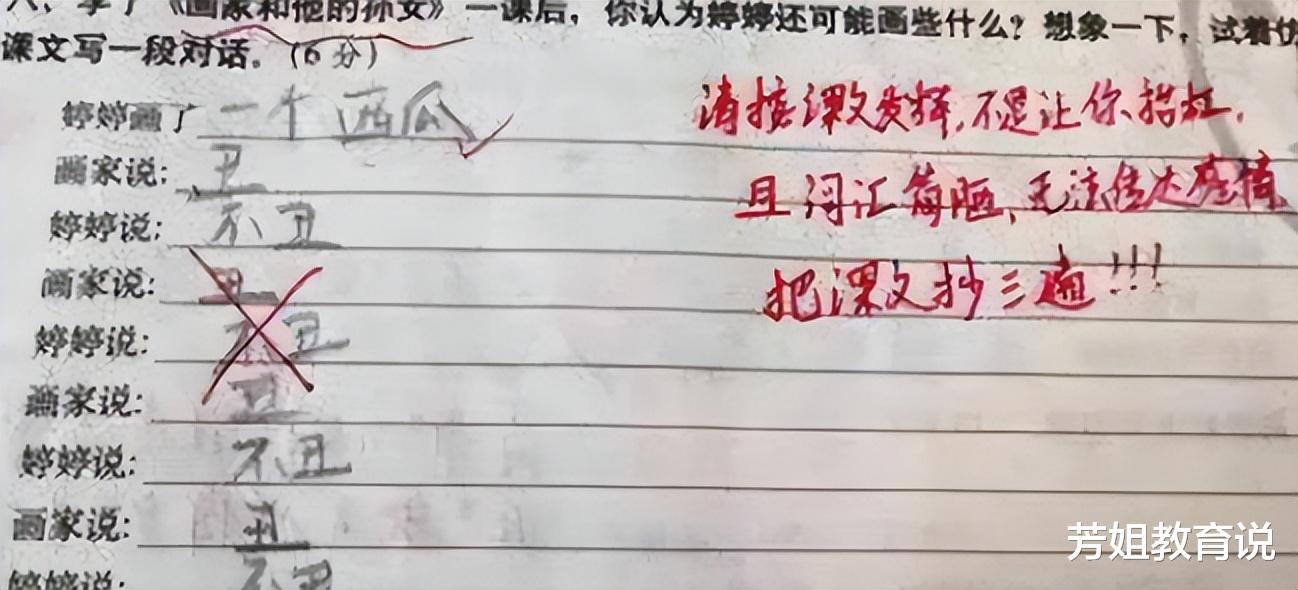 八、学了《画家和他的孙女》一课后，你认为婷婷还可能画些什么？想象一下，试着仿
课文写一段对话。（6分）
婷婷画了一个西瓜
画家说：丑
婷婷说：不丑
画家说：丑
婷婷说：不丑
画家说：丑
婷婷说：不丑
画家说：丑
婷婷说：不丑
请按课文发挥，不是让你抬杠，
且词汇简陋、无法传达感情
把课文抄三遍！！！
芳姐教育说